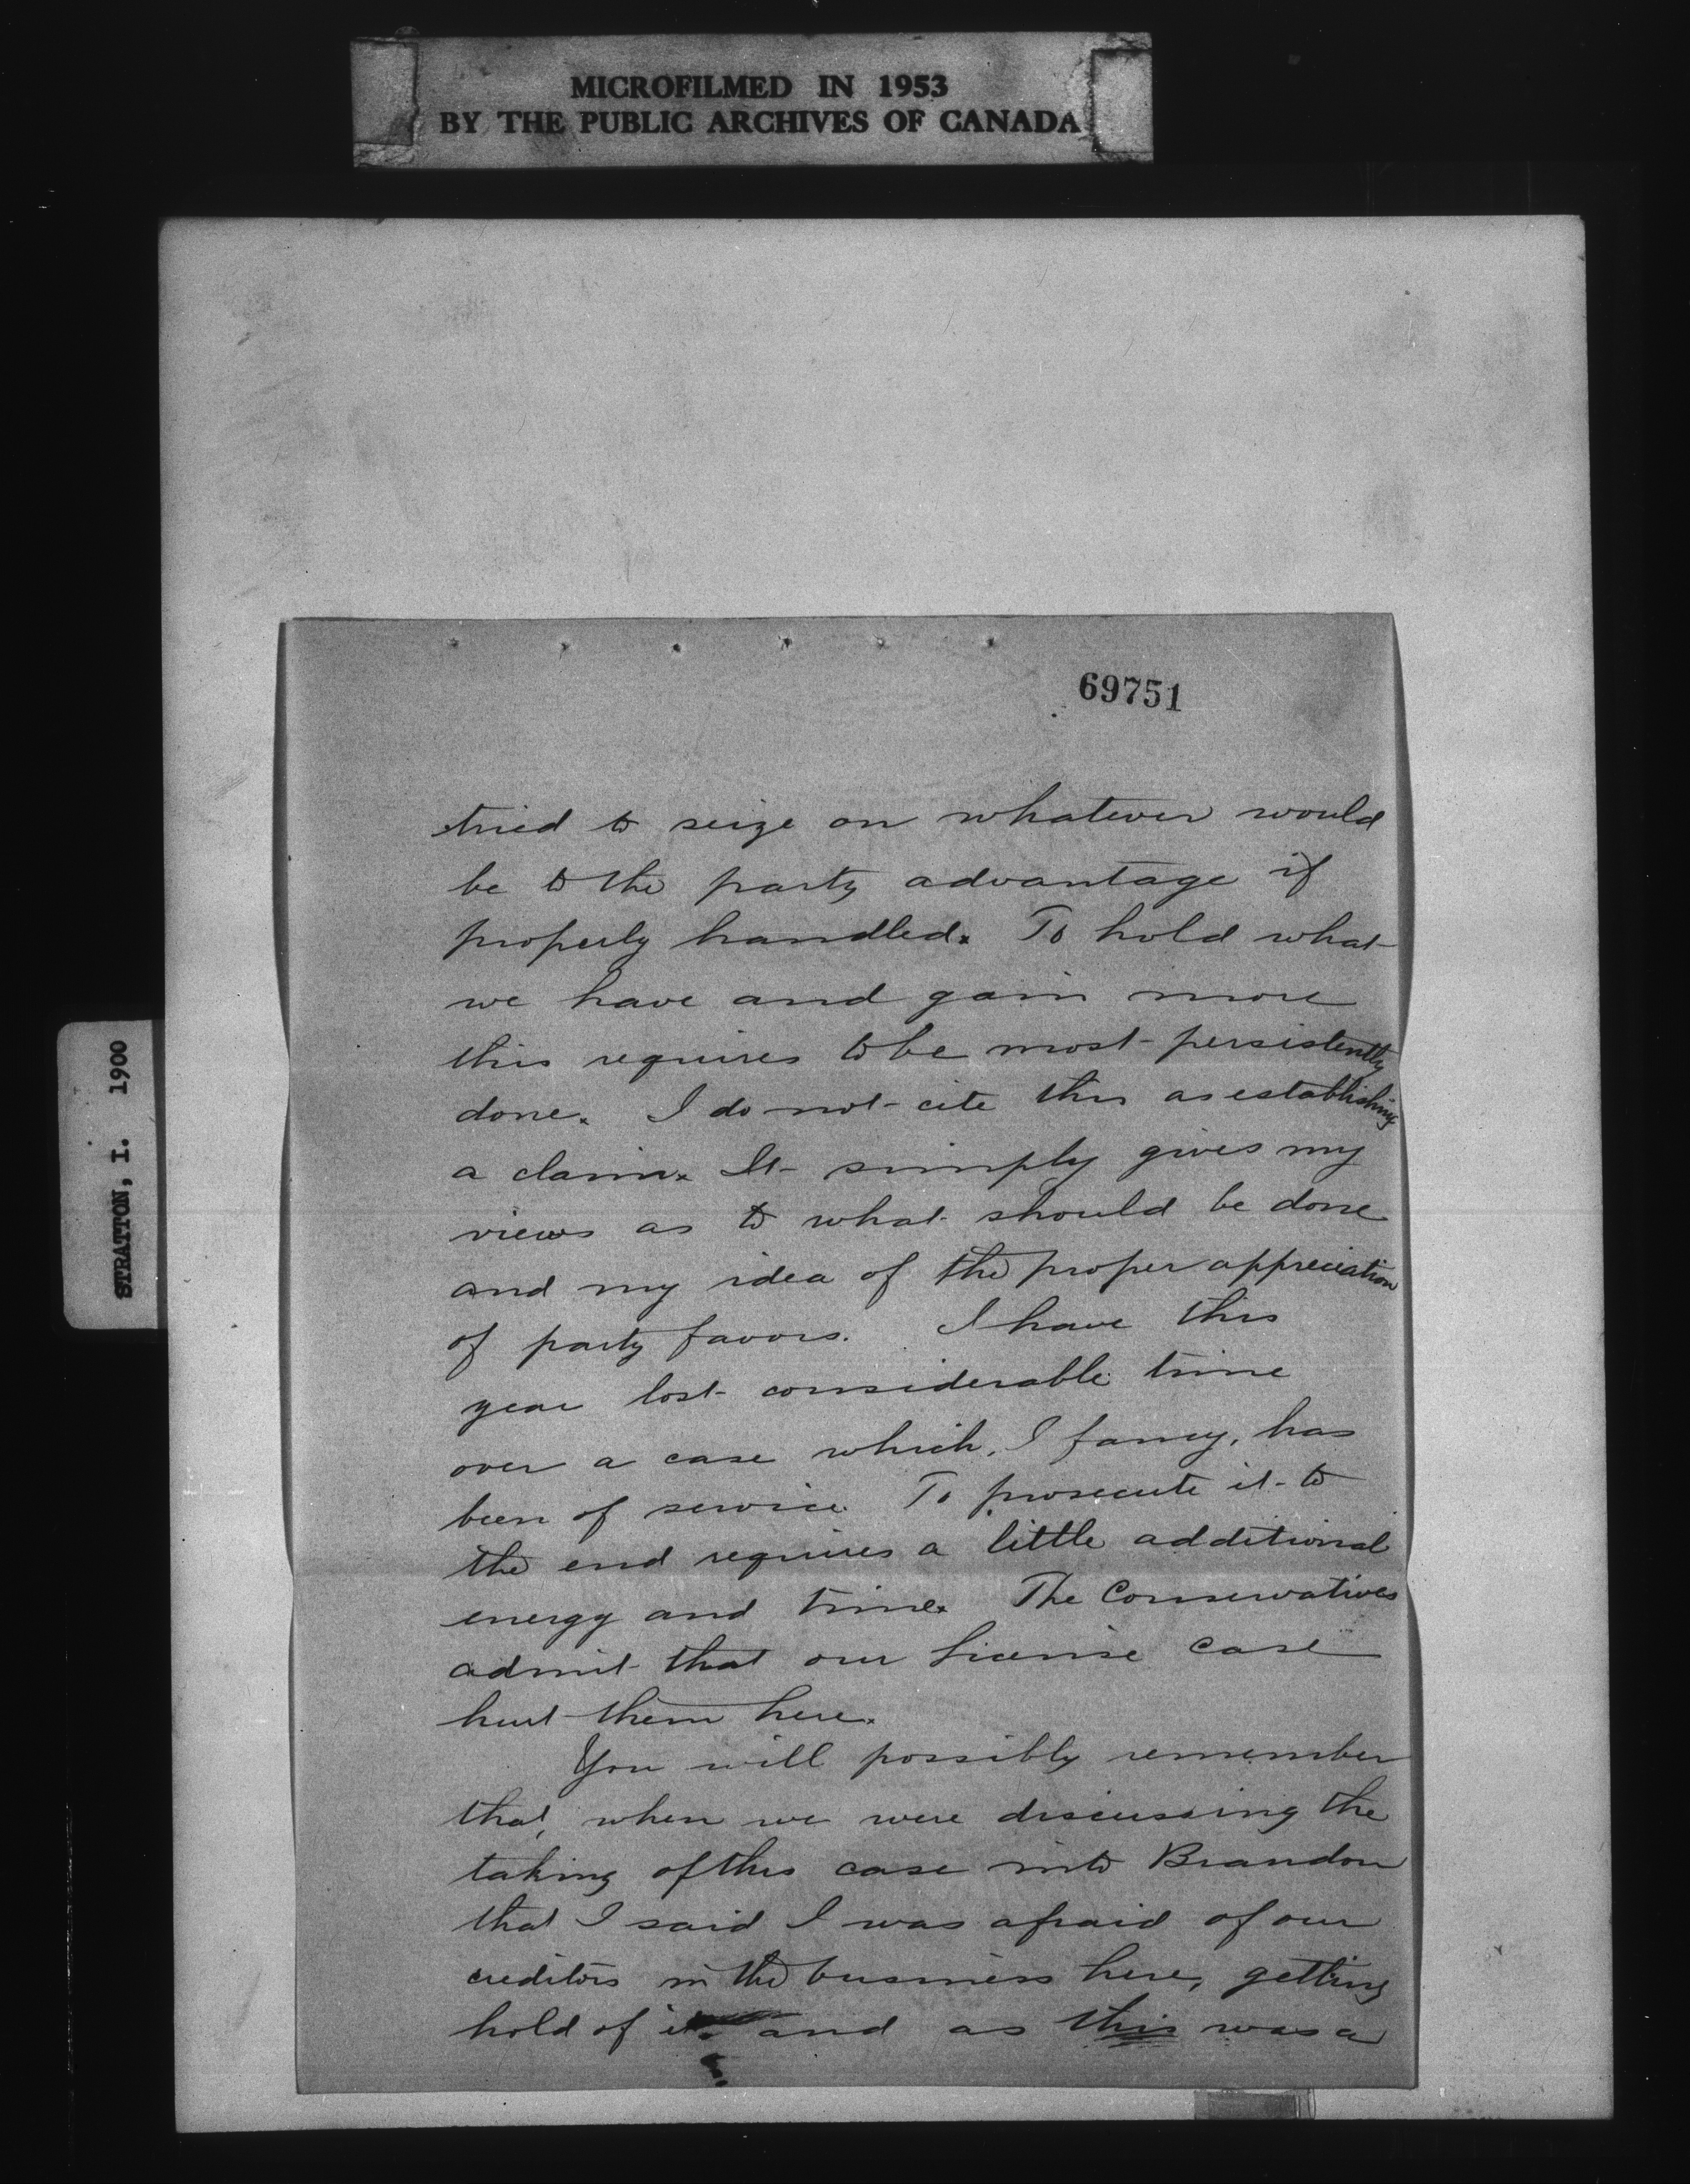 MICROFILMED IN 1953
BY THE PUBLIC ARCHIVES OF CANADA
STRATTON, I. 1900
69751
tried to seize on whatever would
be to the party advantage if
properly handled. To hold what
we have and gain more
this requires to be most persistently
done. I do not cite this as establishing
a claim. It simply gives my
views as to what should be done
and my idea of the proper appreciation
of party favors. I have this
year lost considerable time
over a case which, I fancy, has
been of service. To prosecute it to
the end requires a little additional
energy and time. The Conservatives
admit that our license case
hurt them here.
You will possibly remember
that, when we were discussing the
taking of this case into Brandon
that I said I was afraid of our
creditors in the business here, getting
hold of it. and as this was a